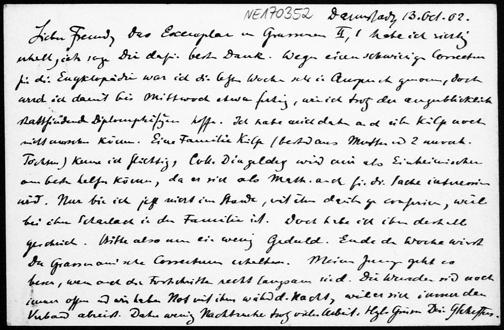 NEA170352
Darmstadt, 13. Oct. 02.
Lieber Freund, Das Exemplar von Grassmann II,1 habe ich richtig
erhalt., ich sage Dir dafür besten Dank. Wegen einer schwierigen Correctur
für die Encyklopädie war ich die letzten Wochen sehr in Anspruch genom., doch
werd ich damit bis Mittwoch etwa fertig, wie ich trotz der augenblicklich
stattfindend. Diplomprüfgen hoffe. Ich habe mich daher auch um Kilp noch
nicht kümmern können. Eine Familie Kilp (best. aus Mutter u. 2 unverh.
Töchtern) kenne ich flüchtig, Coll. Dingeldey wird mir als Einheimischer
am besten helfen können, da er sich als Math. auch f. die Sache interessieren
wird. Nur bin ich jetzt nicht im Stande, mit ihm darüber zu conferieren, weil
bei ihm Scharlach in der Familie ist. Doch habe ich ihm deshalb
geschrieb. Bitte also um ein wenig Geduld. Ende der Woche wirst
Du Grassmann'sche Correcturen erhalten. Meinem Jungen geht es
besser, wenn auch die Fortschritte recht langsam sind. Die Wunden sind noch
immer offen u. wir haben Not mit ihm währd. d. Nacht, weil er sich immer den
Verband abreisst. Daher wenig Nachtruhe trotz vieler Arbeit. Hzl. Gruss Dein